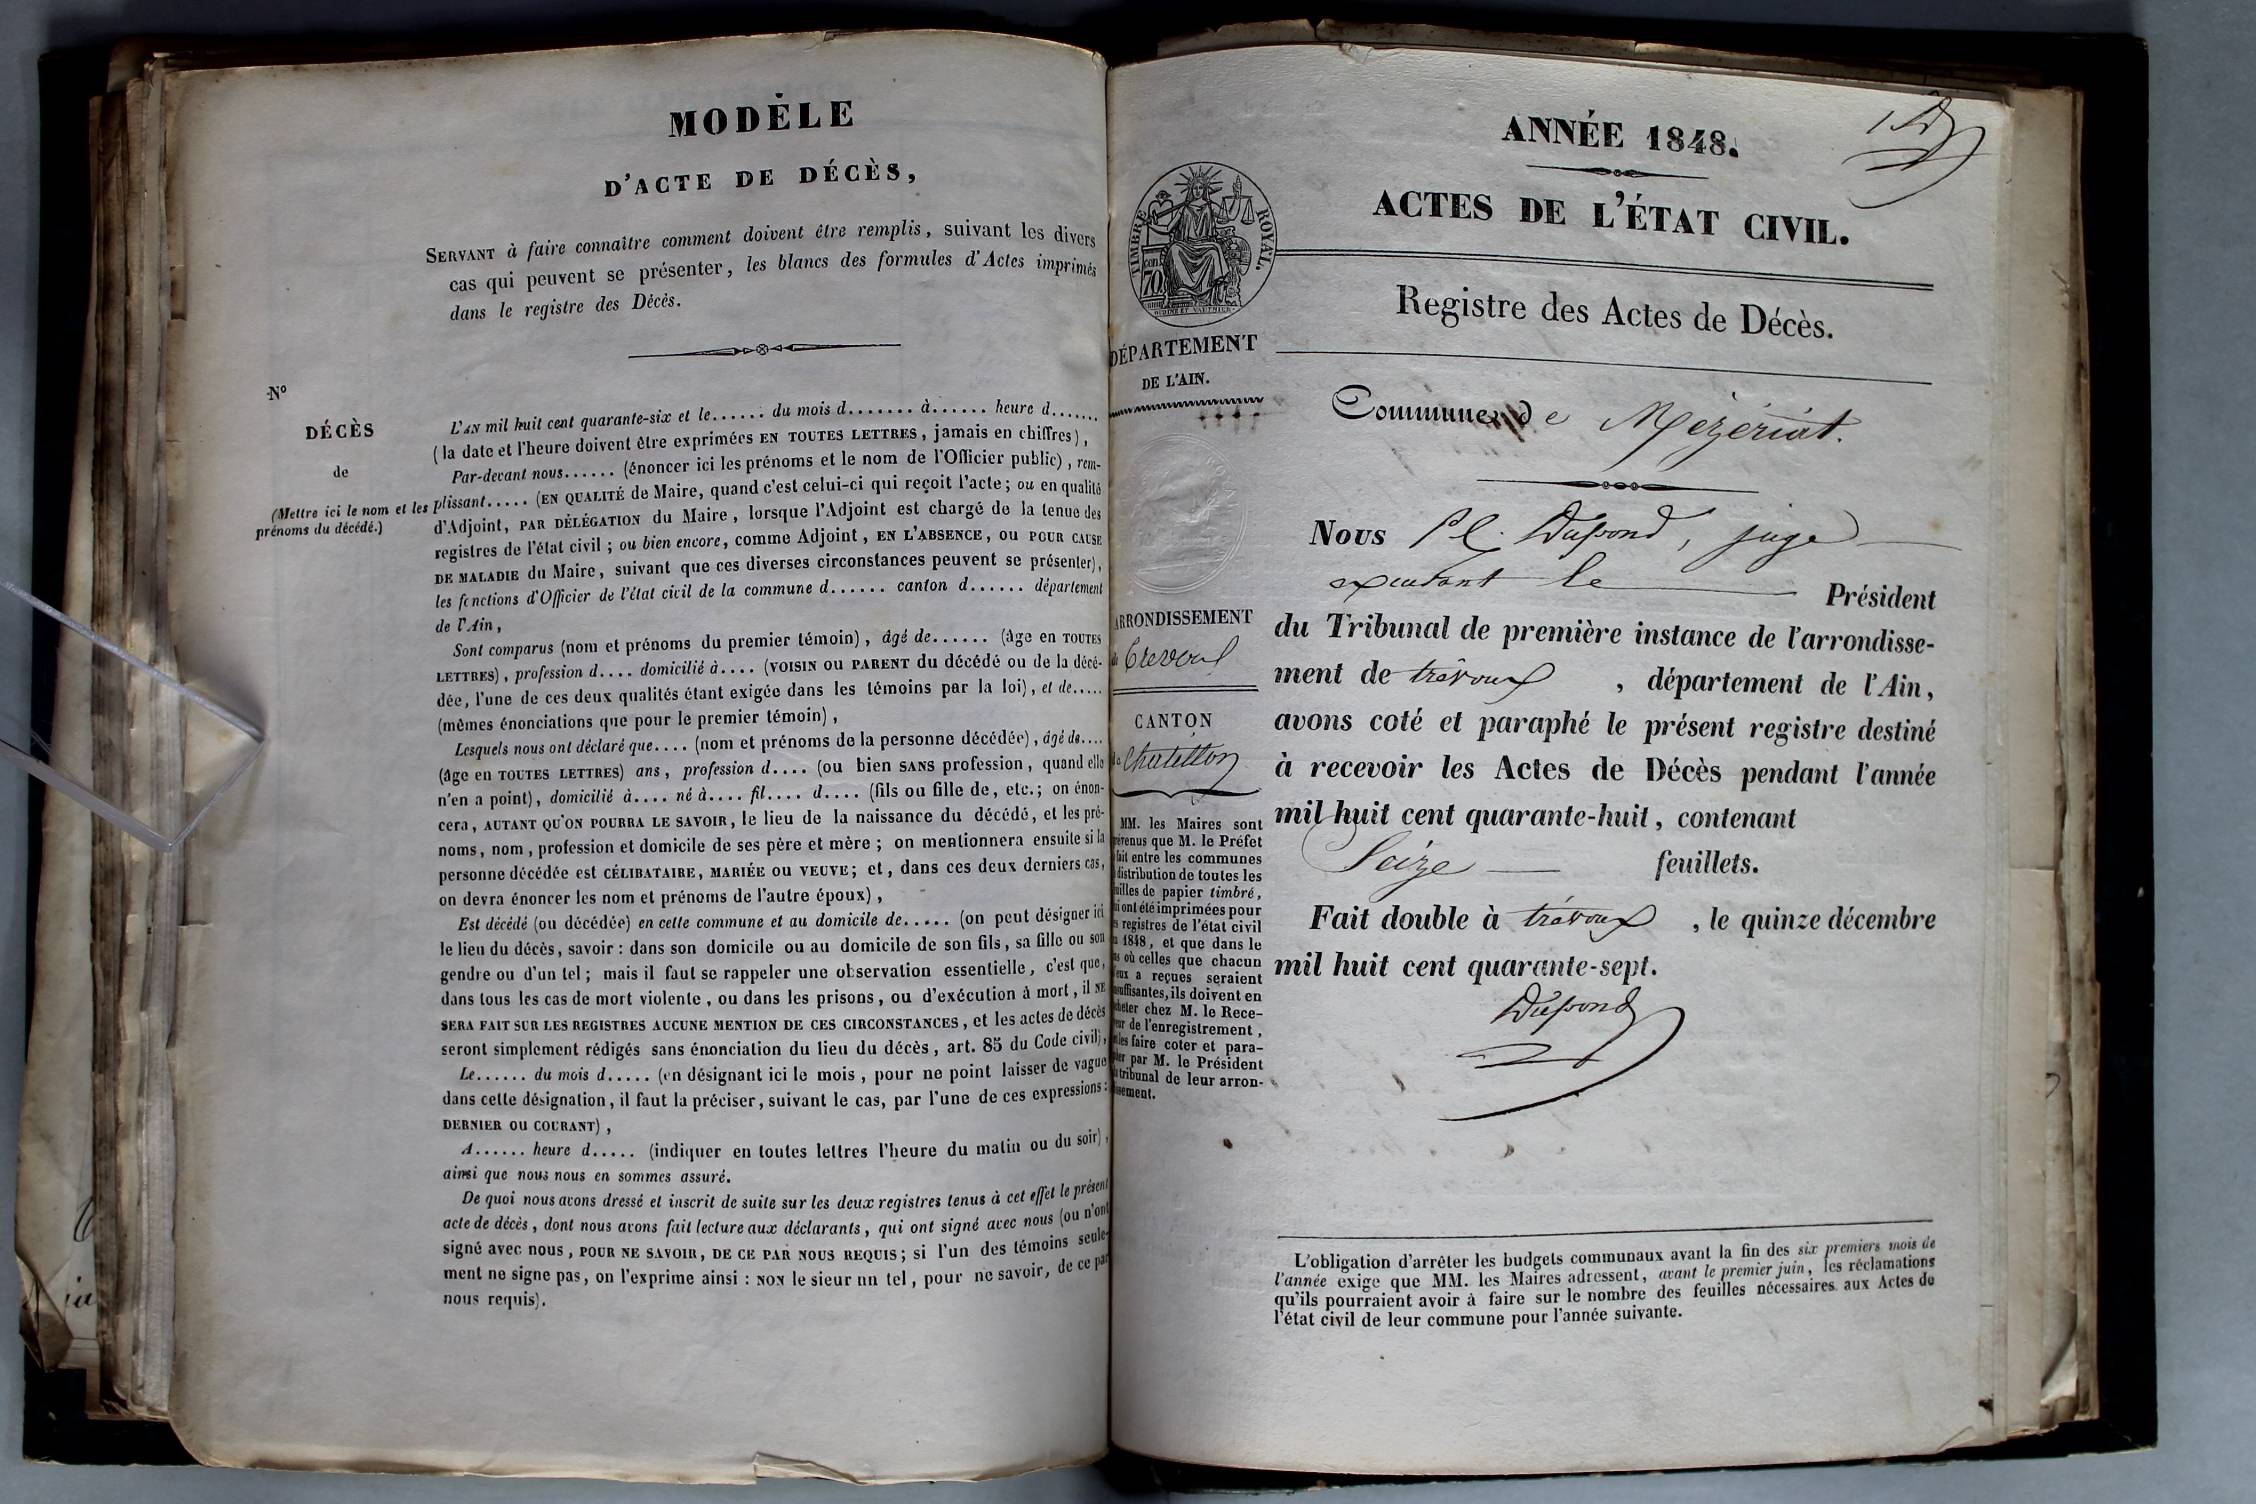 MODÈLE
D'ACTE DE DÉCÈS,
SERVANT à faire connaître comment doivent être remplis, suivant les divers
cas qui peuvent se présenter, les blancs des formules d'Actes imprimés
dans le registre des Décès.
N°
DÉCÈS
de
(Mettre ici le nom et les
prénoms du décédé.)
L'AN mil huit cent quarante-six et le...... du mois d....... à...... heure d.......
(la date et l'heure doivent être exprimées EN TOUTES LETTRES, jamais en chiffres),
Par-devant nous...... (énoncer ici les prénoms et le nom de l'Officier public), rem-
plissant..... (EN QUALITÉ de Maire, quand c'est celui-ci qui reçoit l'acte; ou en qualité
d'Adjoint, PAR DÉLÉGATION du Maire, lorsque l'Adjoint est chargé de la tenue des
registres de l'état civil; ou bien encore, comme Adjoint, EN L'ABSENCE, OU POUR CAUSE
DE MALADIE du Maire, suivant que ces diverses circonstances peuvent se présenter),
les fonctions d'Officier de l'état civil de la commune d...... canton d...... département
de l'Ain,
Sont comparus (nom et prénoms du premier témoin), âgé de...... (âge en TOUTES
LETTRES), profession d.... domicilié à.... (VOISIN OU PARENT du décédé ou de la décé-
dée, l'une de ces deux qualités étant exigée dans les témoins par la loi), et de.....
(mêmes énonciations que pour le premier témoin),
Lesquels nous ont déclaré que.... (nom et prénoms de la personne décédée), âgé de....
(âge en TOUTES LETTRES) ans, profession d.... (ou bien SANS profession, quand elle
n'en a point), domicilié à.... né à.... fil.... d.... (fils ou fille de, etc.; on énon-
cera, AUTANT QU'ON POURRA LE SAVOIR, le lieu de la naissance du décédé, et les pré-
noms, nom, profession et domicile de ses père et mère; on mentionnera ensuite si la
personne décédée est CÉLIBATAIRE, MARIÉE OU VEUVE; et, dans ces deux derniers cas,
on devra énoncer les nom et prénoms de l'autre époux),
Est décédé (ou décédée) en cette commune et au domicile de..... (on peut désigner ici
le lieu du décès, savoir: dans son domicile ou au domicile de son fils, sa fille ou son
gendre ou d'un tel; mais il faut se rappeler une observation essentielle, c'est que,
dans tous les cas de mort violente, ou dans les prisons, ou d'exécution à mort, il NE
SERA FAIT SUR LES REGISTRES AUCUNE MENTION DE CES CIRCONSTANCES, et les actes de décès
seront simplement rédigés sans énonciation du lieu du décès, art. 85 du Code civil),
Le...... du mois d..... (en désignant ici le mois, pour ne point laisser de vague
dans cette désignation, il faut la préciser, suivant le cas, par l'une de ces expressions:
DERNIER OU COURANT),
A...... heure d..... (indiquer en toutes lettres l'heure du matin ou du soir),
ainsi que nous nous en sommes assuré.
De quoi nous avons dressé et inscrit de suite sur les deux registres tenus à cet effet le présent
acte de décès, dont nous avons fait lecture aux déclarants, qui ont signé avec nous (ou n'ont
signé avec nous, POUR NE SAVOIR, DE CE PAR NOUS REQUIS; si l'un des témoins seule-
ment ne signe pas, on l'exprime ainsi: NON le sieur un tel, pour ne savoir, de ce par
nous requis).
1
ANNÉE 1848.
ACTES DE L'ÉTAT CIVIL.
Registre des Actes de Décès.
TIMBRE ROYAL.
cen. 70.
DÉPARTEMENT
DE L'AIN.
Commune de Mézériat.
Nous Pl. Dupond, juge
exerçant le Président
du Tribunal de première instance de l'arrondisse-
ment de trévoux, département de l'Ain,
avons coté et paraphé le présent registre destiné
à recevoir les Actes de Décès pendant l'année
mil huit cent quarante-huit, contenant
Seize feuillets.
Fait double à trévoux, le quinze décembre
mil huit cent quarante-sept.
Dupond
ARRONDISSEMENT
de Trevoux
CANTON
de Chatillon
MM. les Maires sont
prévenus que M. le Préfet
fait entre les communes
distribution de toutes les
feuilles de papier timbré,
qui ont été imprimées pour
les registres de l'état civil
1848, et que dans le
cas où celles que chacun
d'eux a reçues seraient
insuffisantes, ils doivent en
acheter chez M. le Rece-
veur de l'enregistrement,
les faire coter et para-
pher par M. le Président
tribunal de leur arron-
dissement.
L'obligation d'arrêter les budgets communaux avant la fin des six premiers mois de
l'année exige que MM. les Maires adressent, avant le premier juin, les réclamations
qu'ils pourraient avoir à faire sur le nombre des feuilles nécessaires aux Actes de
l'état civil de leur commune pour l'année suivante.